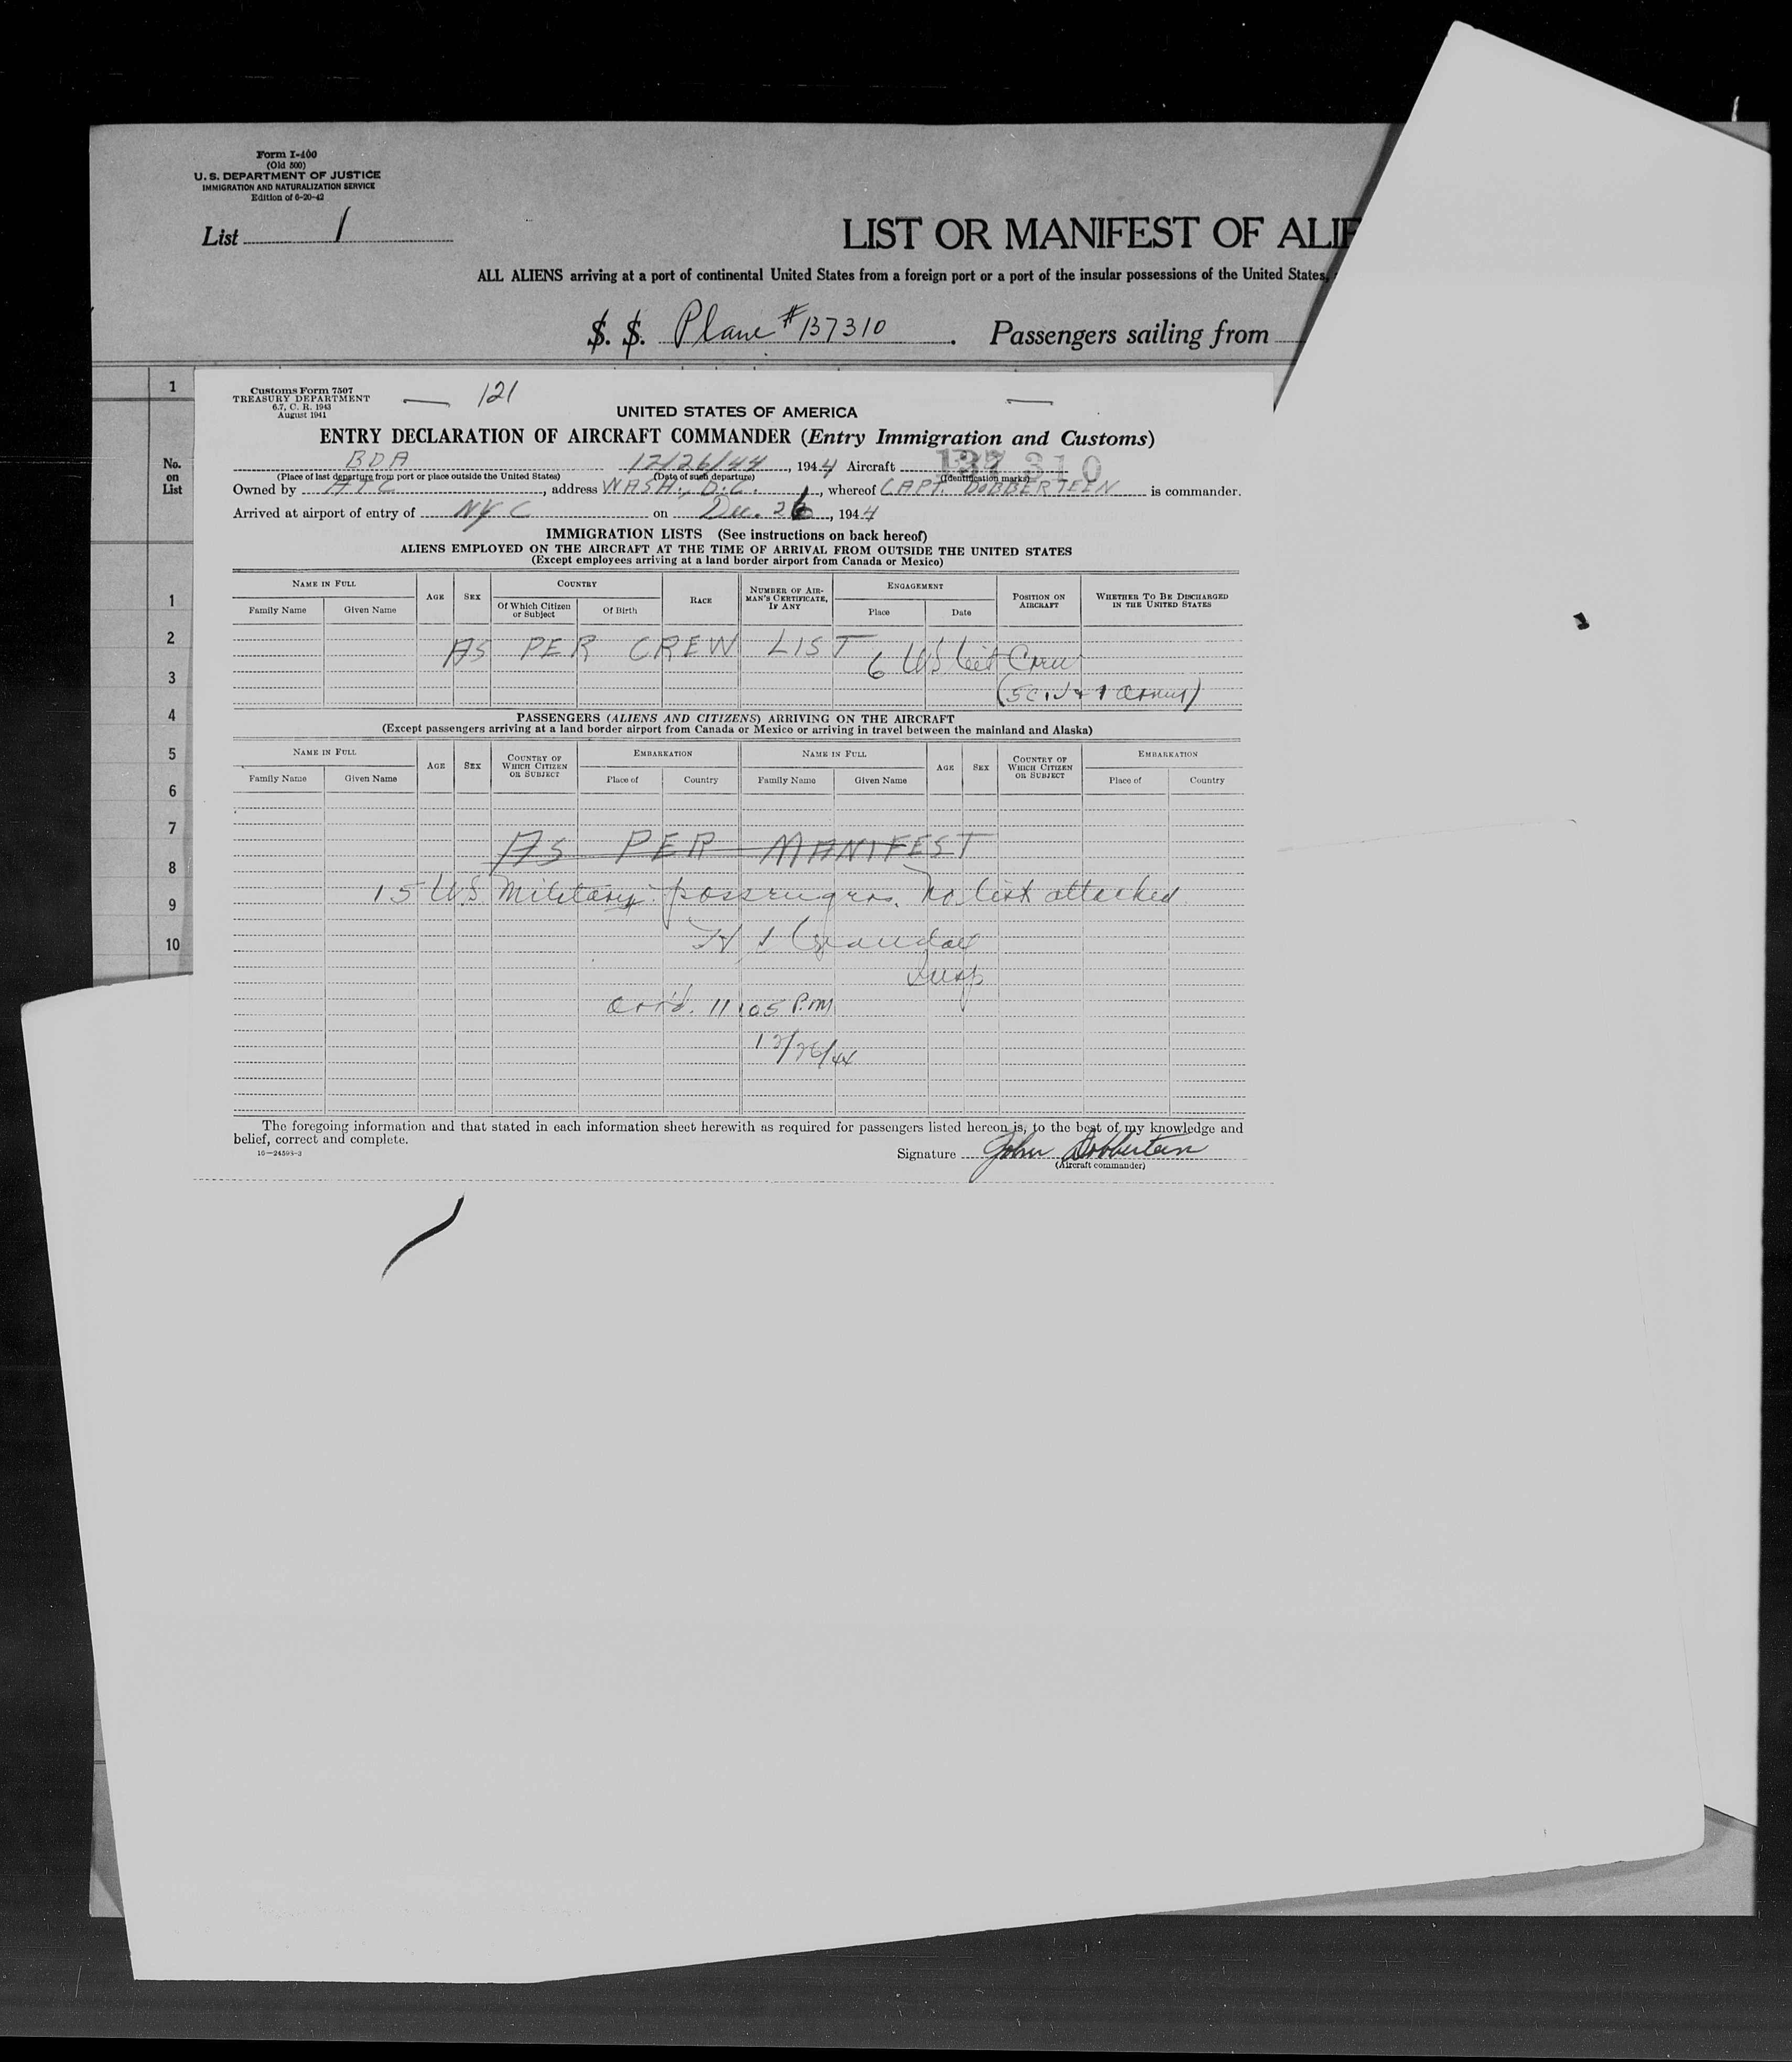 Form I-400
(Old 500)
U. S. DEPARTMENT OF JUSTICE
IMMIGRATION AND NATURALIZATION SERVICE
Edition of 6-20-42
List 1
LIST OR MANIFEST OF ALIE
ALL ALIENS arriving at a port of continental United States from a foreign port or a port of the insular possessions of the United States,
S. S. Plane #137310. Passengers sailing from
Customs Form 7507
TREASURY DEPARTMENT
6.7, C. R. 1943
August 1941
121
UNITED STATES OF AMERICA
ENTRY DECLARATION OF AIRCRAFT COMMANDER (Entry Immigration and Customs)
BDA 12/26/44, 1944 Aircraft 137310
(Place of last departure from port or place outside the United States) (Date of such departure) (Identification marks)
Owned by ATC, address WASH., D.C., whereof CAPT. DOBBERTEEN is commander.
Arrived at airport of entry of NYC on Dec. 26, 1944
IMMIGRATION LISTS (See instructions on back hereof)
ALIENS EMPLOYED ON THE AIRCRAFT AT THE TIME OF ARRIVAL FROM OUTSIDE THE UNITED STATES
(Except employees arriving at a land border airport from Canada or Mexico)
NAME IN FULL AGE SEX COUNTRY RACE NUMBER OF AIRMAN'S CERTIFICATE, IF ANY ENGAGEMENT POSITION ON AIRCRAFT WHETHER TO BE DISCHARGED IN THE UNITED STATES
Family Name Given Name Of Which Citizen or Subject Of Birth Place Date
AS PER CREW LIST
6 US Cit Crew
(5 civ + 1 army)
PASSENGERS (ALIENS AND CITIZENS) ARRIVING ON THE AIRCRAFT
(Except passengers arriving at a land border airport from Canada or Mexico or arriving in travel between the mainland and Alaska)
NAME IN FULL AGE SEX COUNTRY OF WHICH CITIZEN OR SUBJECT EMBARKATION NAME IN FULL AGE SEX COUNTRY OF WHICH CITIZEN OR SUBJECT EMBARKATION
Family Name Given Name Place of Country Family Name Given Name Place of Country
AS PER MANIFEST
15 U.S. Military passengers. No list attached
Insp
arr'd. 11:05 P.M
12/26/44
The foregoing information and that stated in each information sheet herewith as required for passengers listed hereon is, to the best of my knowledge and
belief, correct and complete.
16—24598-3
Signature John Dobberteen
(Aircraft commander)
No.
on
List
1
1
2
3
4
5
6
7
8
9
10